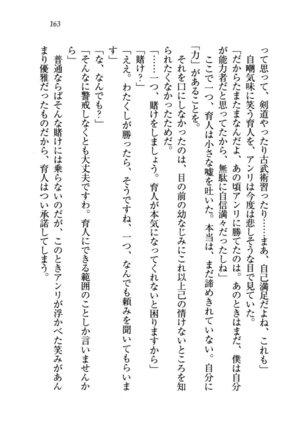 163
って思って、剣道やったり古武術習ったり……まあ、自己満足だよね、これも」
自嘲気味に笑う育人を、アンリは今度は悲しそうな目で見ていた。
「だからたまたまなんだよ、あの頃アンリに勝てたのは。あのときはまだ、僕は自分
が能力者だと思ってたから、無駄に自信満々だったしね」
ここで一つ、育人は小さな嘘を吐いた。本当は、まだ諦めきれていない。自分に
「力」があることを。
それを口にしなかったのは、目の前の幼なじみにこれ以上己の情けないところを知
られたくなかったためだ。
「……一つ、賭けをしましょう。育人が本気になってくれないと困りますから」
「賭け？」
「ええ。わたくしが勝ったら、そうですね、一つ、なんでも頼みを聞いてもらいま
す」
「な、なんでも？」
「そんなに警戒しなくとも大丈夫ですわ。育人にできる範囲のことしか言いませんか
ら」
普通ならばそんな賭けには乗らないのだが、このときアンリが浮かべた笑みがあん
まり優雅だったものだから、育人はつい承諾してしまう。